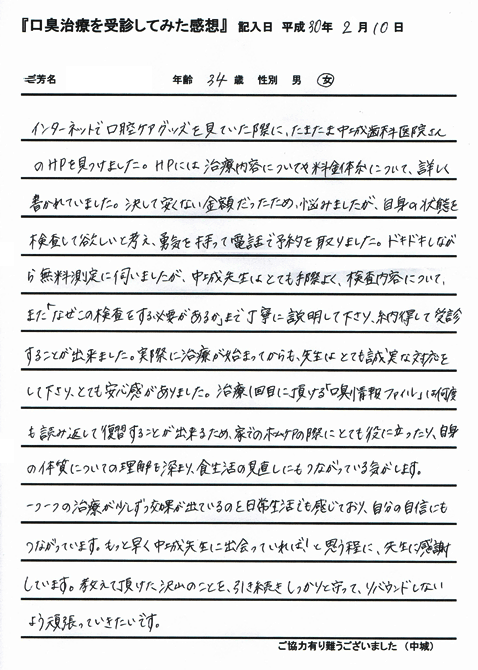 『口臭治療を受診してみた感想』 記入日 平成30年 2月10日
ご芳名 年齢 34歳 性別 男 女
インターネットで口腔ケアグッズを見ていた際に、たまたま中城歯科医院さん
のHPを見つけました。HPには治療内容についてや料金体系について、詳しく
書かれていました。決して安くない金額だったため、悩みましたが、自身の状態を
検査して欲しいと考え、勇気を持って電話で予約を取りました。ドキドキしなが
ら無料測定に伺いましたが、中城先生はとても手際よく、検査内容について、
また「なぜこの検査をする必要があるか」まで丁寧に説明して下さり、納得して受診
することが出来ました。実際に治療が始まってからも、先生はとても誠実な対応を
して下さり、とても安心感がありました。治療1回目に頂ける「口臭情報ファイル」は何度
も読み返して復習することが出来るため、家でのホームケアの際にとても役に立ったり、自身
の体質についての理解を深まり、食生活の見直しにもつながっている気がします。
一つ一つの治療が少しずつ効果が出ているのを日常生活でも感じており、自分の自信にも
つながっています。もっと早く中城先生に出会っていれば!と思う程に、先生に感謝
しています。教えて頂けた沢山のことを、引き続きしっかりと守って、リバウンドしない
よう頑張っていきたいです。
ご協力有り難うございました (中城)